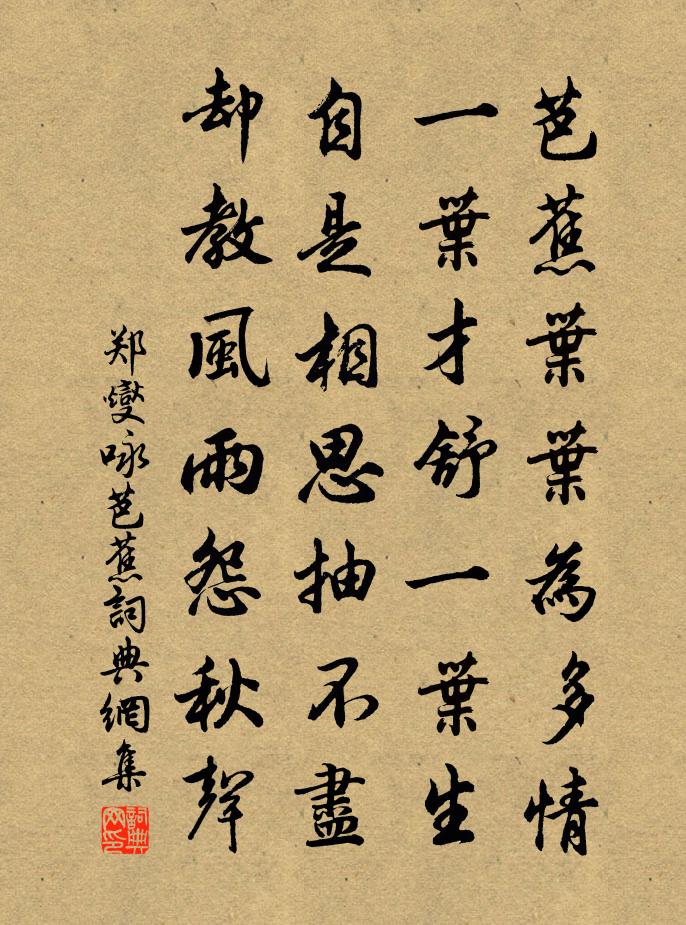 芭蕉葉葉為多情
一葉才舒一葉生
自是相思抽不盡
却教風雨怨秋聲
郑燮咏芭蕉詞典網集
詞典网印